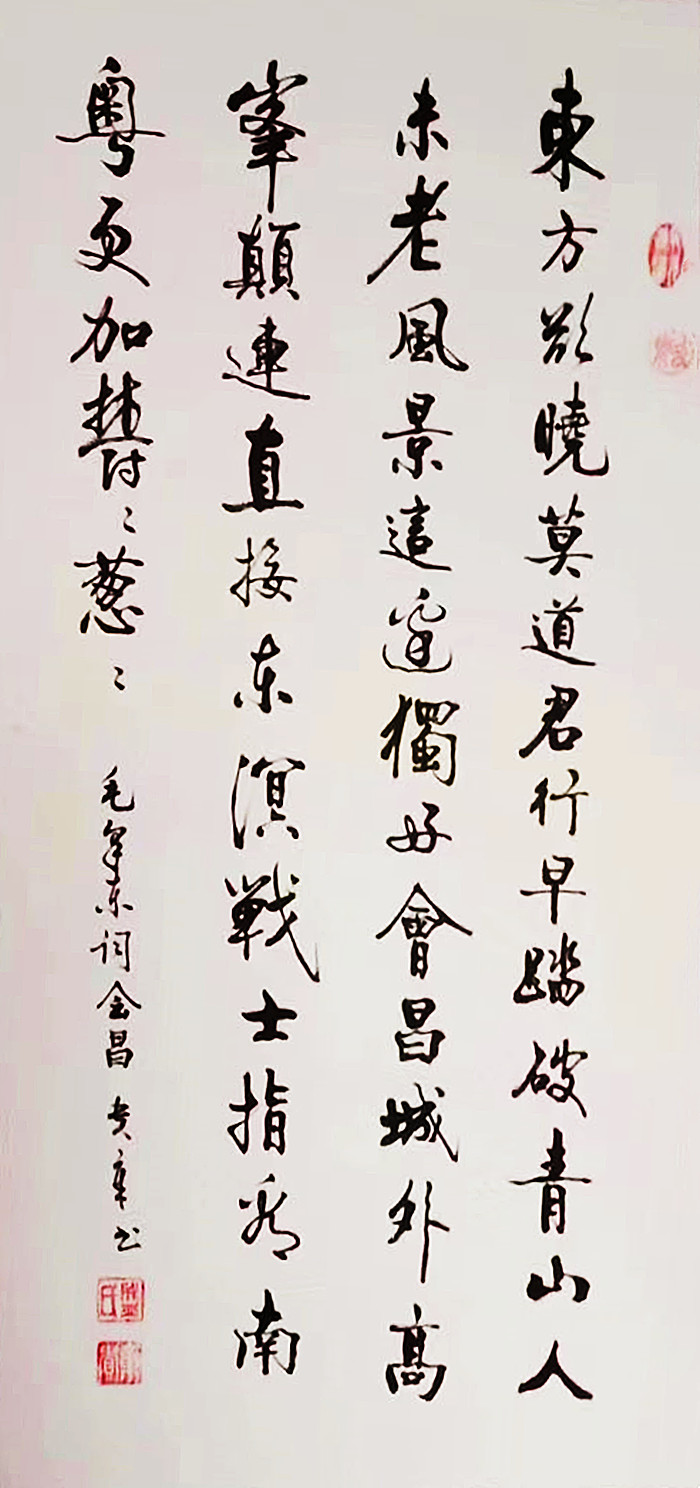 東方欲曉莫道君行早踏破青山人
未老風景這邊獨好會昌城外高
峯顛連直接东溟戰士指看南
粤更加鬱〻葱〻
毛泽东词会昌 书